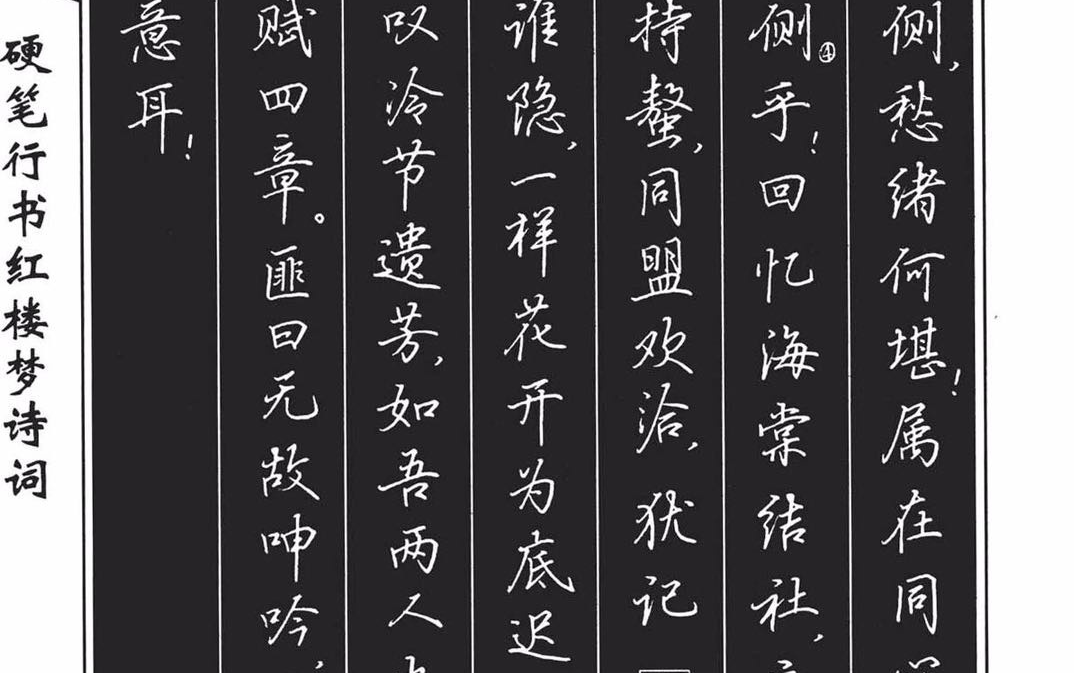 侧,愁绪何堪!属在同
侧④乎!回忆海棠结社,
持螯,同盟欢洽,犹记
谁隐,一样花开为底迟
叹冷节遗芳,如吾两人
赋四章。匪曰无故呻吟,
意耳!
硬笔行书红楼梦诗词